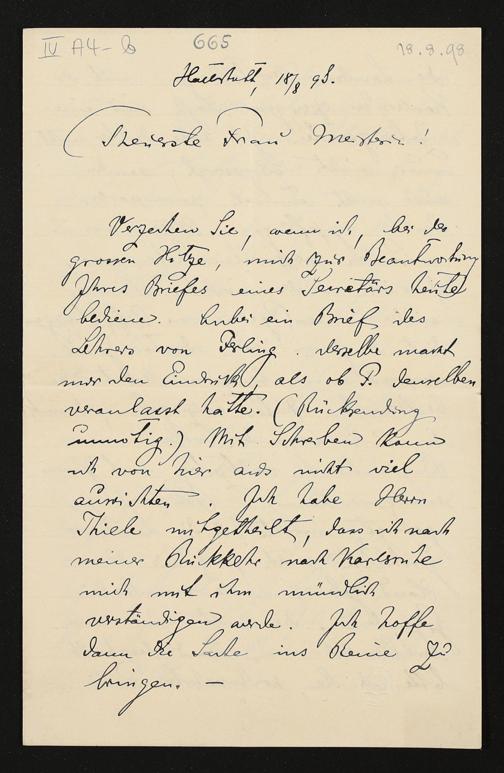 IV A4-B 665 18.8.98
Hallstatt, 18/8 98.
Theuerste Frau Meisterin!
Verzeihen Sie, wenn ich, bei der
grossen Hitze, mich zur Beantwortung
Ihres Briefes eines Secretärs heute
bediene. Anbei ein Brief des
Lehrers von Ferling. Derselbe macht
mir den Eindruck, als ob P. denselben
veranlasst hätte. (Rücksendung
unnötig.) Mit Schreiben kann
ich von hier aus nicht viel
ausrichten. Ich habe Herrn
Thiele mitgetheilt, dass ich nach
meiner Rückkehr nach Karlsruhe
mich mit ihm mündlich
verständigen werde. Ich hoffe
dann die Sache ins Reine zu
bringen. —